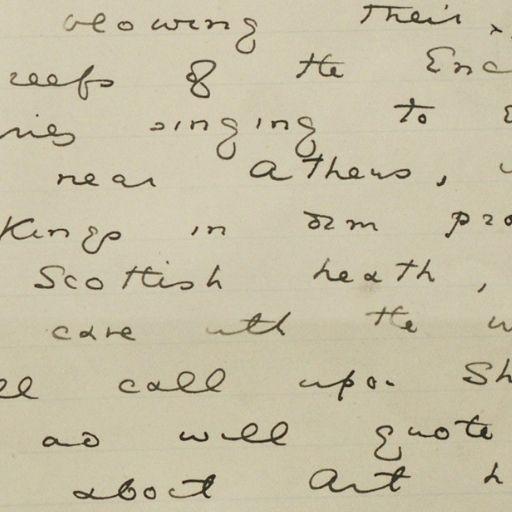 blowing their
reefs of the Enc
ries singing to E
near Athens,
Kings in dim pro
Scottish heath,
care with the w
ll call upon Sh
as will quote
about Art h